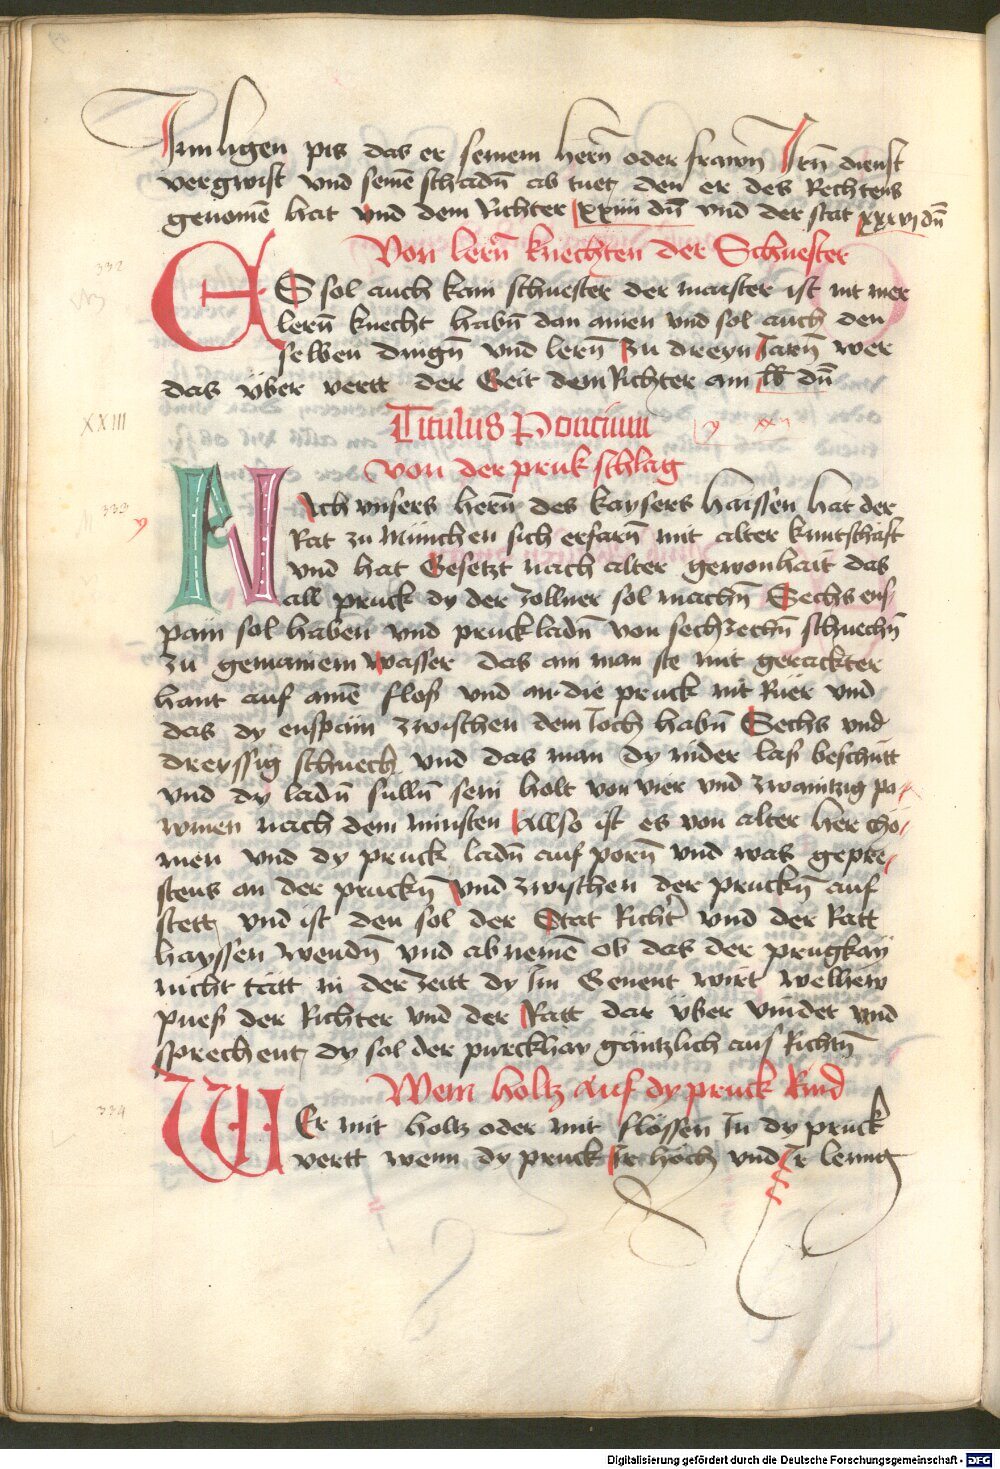 Inn ligen pis das er seinem herñ oder frawñ Irñ dienst
vergwist vnd seinē schadñ ab tuet den er des Rechtens
genomē hat vnd dem Richter xxiiii dñ vnd der stat xxxvi dñ
Von lerñ knechten der Schuester
332
ES sol auch kain schuester der maister ist nit mer
lerñ knecht habñ dan ainen vnd sol auch den
selben dingñ vnd lerñ zu dreyn Jarñ wer
das über vertt der Geit dem Richter am lb dñ
XXIII
Titulus Poncium
von der pruk schlag
333
NAch vnsers herñ des kaysers haissen hat der
Rat zu München sich erfarñ mit alter kuntschaft
vnd hat Gesetzt nach alter gewonhait das
all pruck dy der zollner sol machñ Sechs ens-
pain sol haben vnd pruckladñ von sechzechñ schuechñ
zu gemainem wasser das ain man ste mit gerackter
hant auf ainē flos vnd an die pruck nit Rüer vnd
das dy enspain zwischen dem Joch habñ Sechs vnd
dreyssig schuech vnd das man dy nider las beschütt
vnd dy ladñ sullñ sein holt von vier vnd zwaintzig pa-
wmen nach dem minsten Allso ist es von alter her cho-
men vnd dy pruck ladñ auf porñ vnd was gepre-
stens an der pruckñ vnd zwischen der pruckñ auf
stett vnd ist den sol der Stat Richter vnd der Ratt
hayssen wendñ vnd abnemē ob das der prugkay
nicht tätt in der zeitt dy Im Genent wirt welhew
pues der Richter vnd der Ratt dar über vindet vnd
sprechent dy sol der pürckhay gäntzlich aus Richtñ
Wem holtz auf dy pruck Rind
334
WEr mit holtz oder mit flössen In dy pruck
vertt wenn dy pruck Ir höch vnd Ir leung
Digitalisierung gefördert durch die Deutsche Forschungsgemeinschaft - DFG